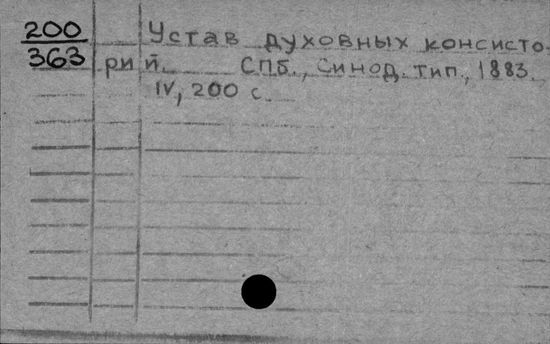 200 Устав духовных консисто-
363 рий. СПб., Синод. тип., 1883.
IV, 200 с.